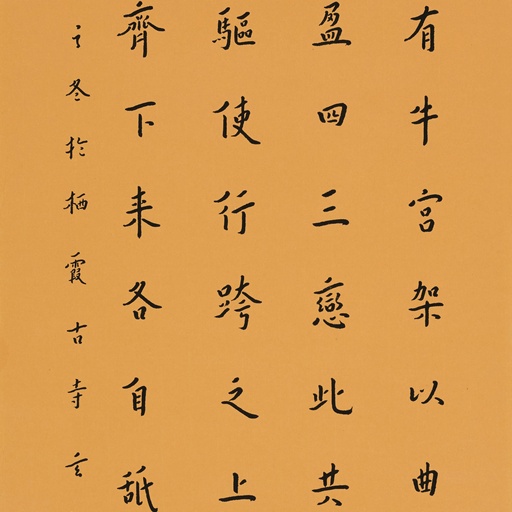 有牛宮架以曲
盈四三戀此共
驅使行跨之上
齊下来各自舐
之冬於栖霞古寺玄